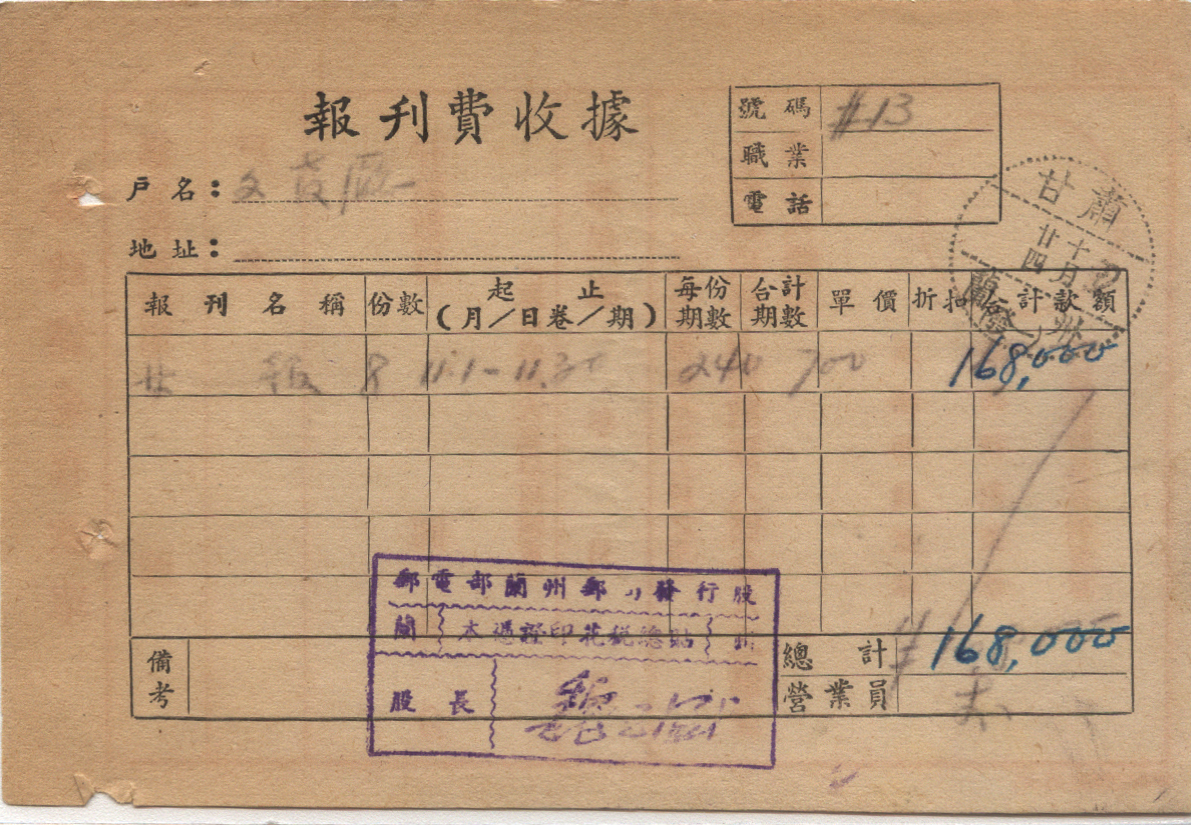 報刊費收據
號碼 #13
職業
電話
戶名：文
地址：
報刊名稱 份數 起止（月／日卷／期） 每份期數 合計期數 單價 折扣 合計款額
甘報 8 11.1-11.30 240 700 168,000
甘肅
十月
廿四
蘭州
郵電部蘭州郵 發行股
蘭 本過證印花稅總貼
股長
備考
總計 #168,000
營業員